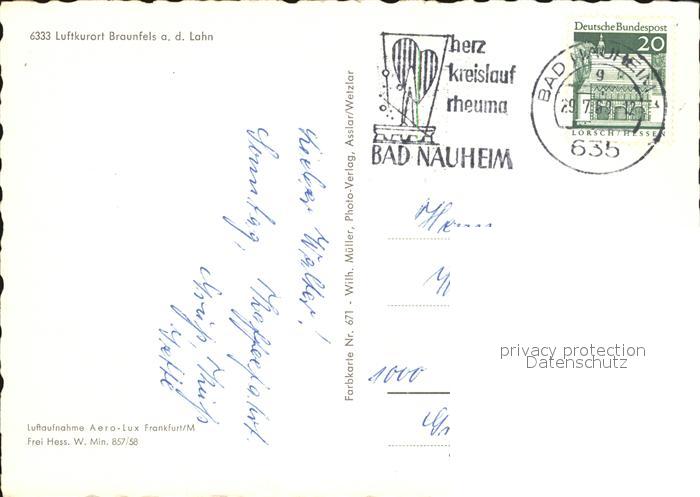 6333 Luftkurort Braunfels a. d. Lahn
Lieber Walter!
Sonntag, Kaffeefahrt.
Gruß Kuß
Luftaufnahme Aero-Lux Frankfurt/M
Frei Hess. W. Min. 857/58
Farbkarte Nr. 671 - Wilh. Müller, Photo-Verlag, Asslar/Wetzlar
herz
kreislauf
rheuma
BAD NAUHEIM
BAD NAUHEIM
635
Deutsche Bundespost
20
LORSCH/HESSEN
1000
privacy protection
Datenschutz